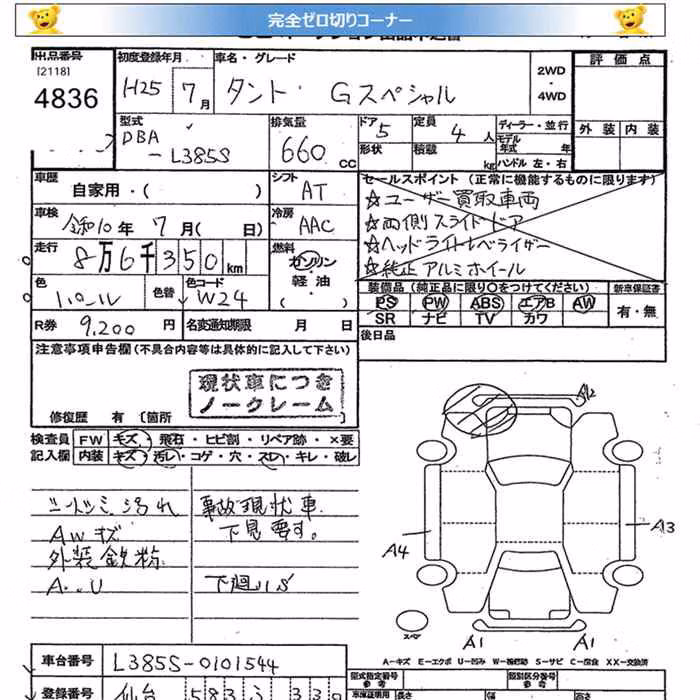 完全ゼロ切りコーナー
出品番号
[2118]
4836
初度登録年月
H25 7月
車名・グレード
タント・Gスペシャル
2WD
・
4WD
評価点
外装 内装
型式
DBA
-L385S
排気量
660 CC
ドア 5
定員 4人
形状
積載 kg
ディーラー・並行
モデル年式 年
ハンドル 左・右
車歴
自家用・( )
シフト
AT
車検
令和10年7月( 日)
冷房
AAC
走行
8万6千350km
燃料
ガソリン
軽油
( )
色
パール
色替
色コード
W24
R券 9,200円
名変通知期限 月 日
セールスポイント(正常に機能するものに限ります)
☆ユーザー買取車両
☆両側スライドドア
☆ヘッドライトレベライザー
☆純正アルミホイール
装備品(純正品に限り○をつけてください)
PS PW ABS エアB AW
SR ナビ TV カワ
新車保証書
有・無
後日品
注意事項申告欄(不具合内容等は具体的に記入して下さい)
現状車につき
ノークレーム
修復歴 有[箇所
検査員
記入欄
FW キズ・飛石・ヒビ割・リペア跡・×要
内装 キズ・汚レ・コゲ・穴・スレ・キレ・破レ
シートシミ汚れ
AWキズ
外装鉄粉
A..U
事故現状車
下見要す。
下廻りS
A2
A4
A3
スペア
A1
A1
A-キズ E-エクボ U-凹み W-補修跡 S-サビ C-腐食 XX-交換済
車台番号 L385S-0101544
登録番号 仙台 583
型式指定番号
参考
類別区分番号
参考
車庫証明用
長さ
幅
高さ